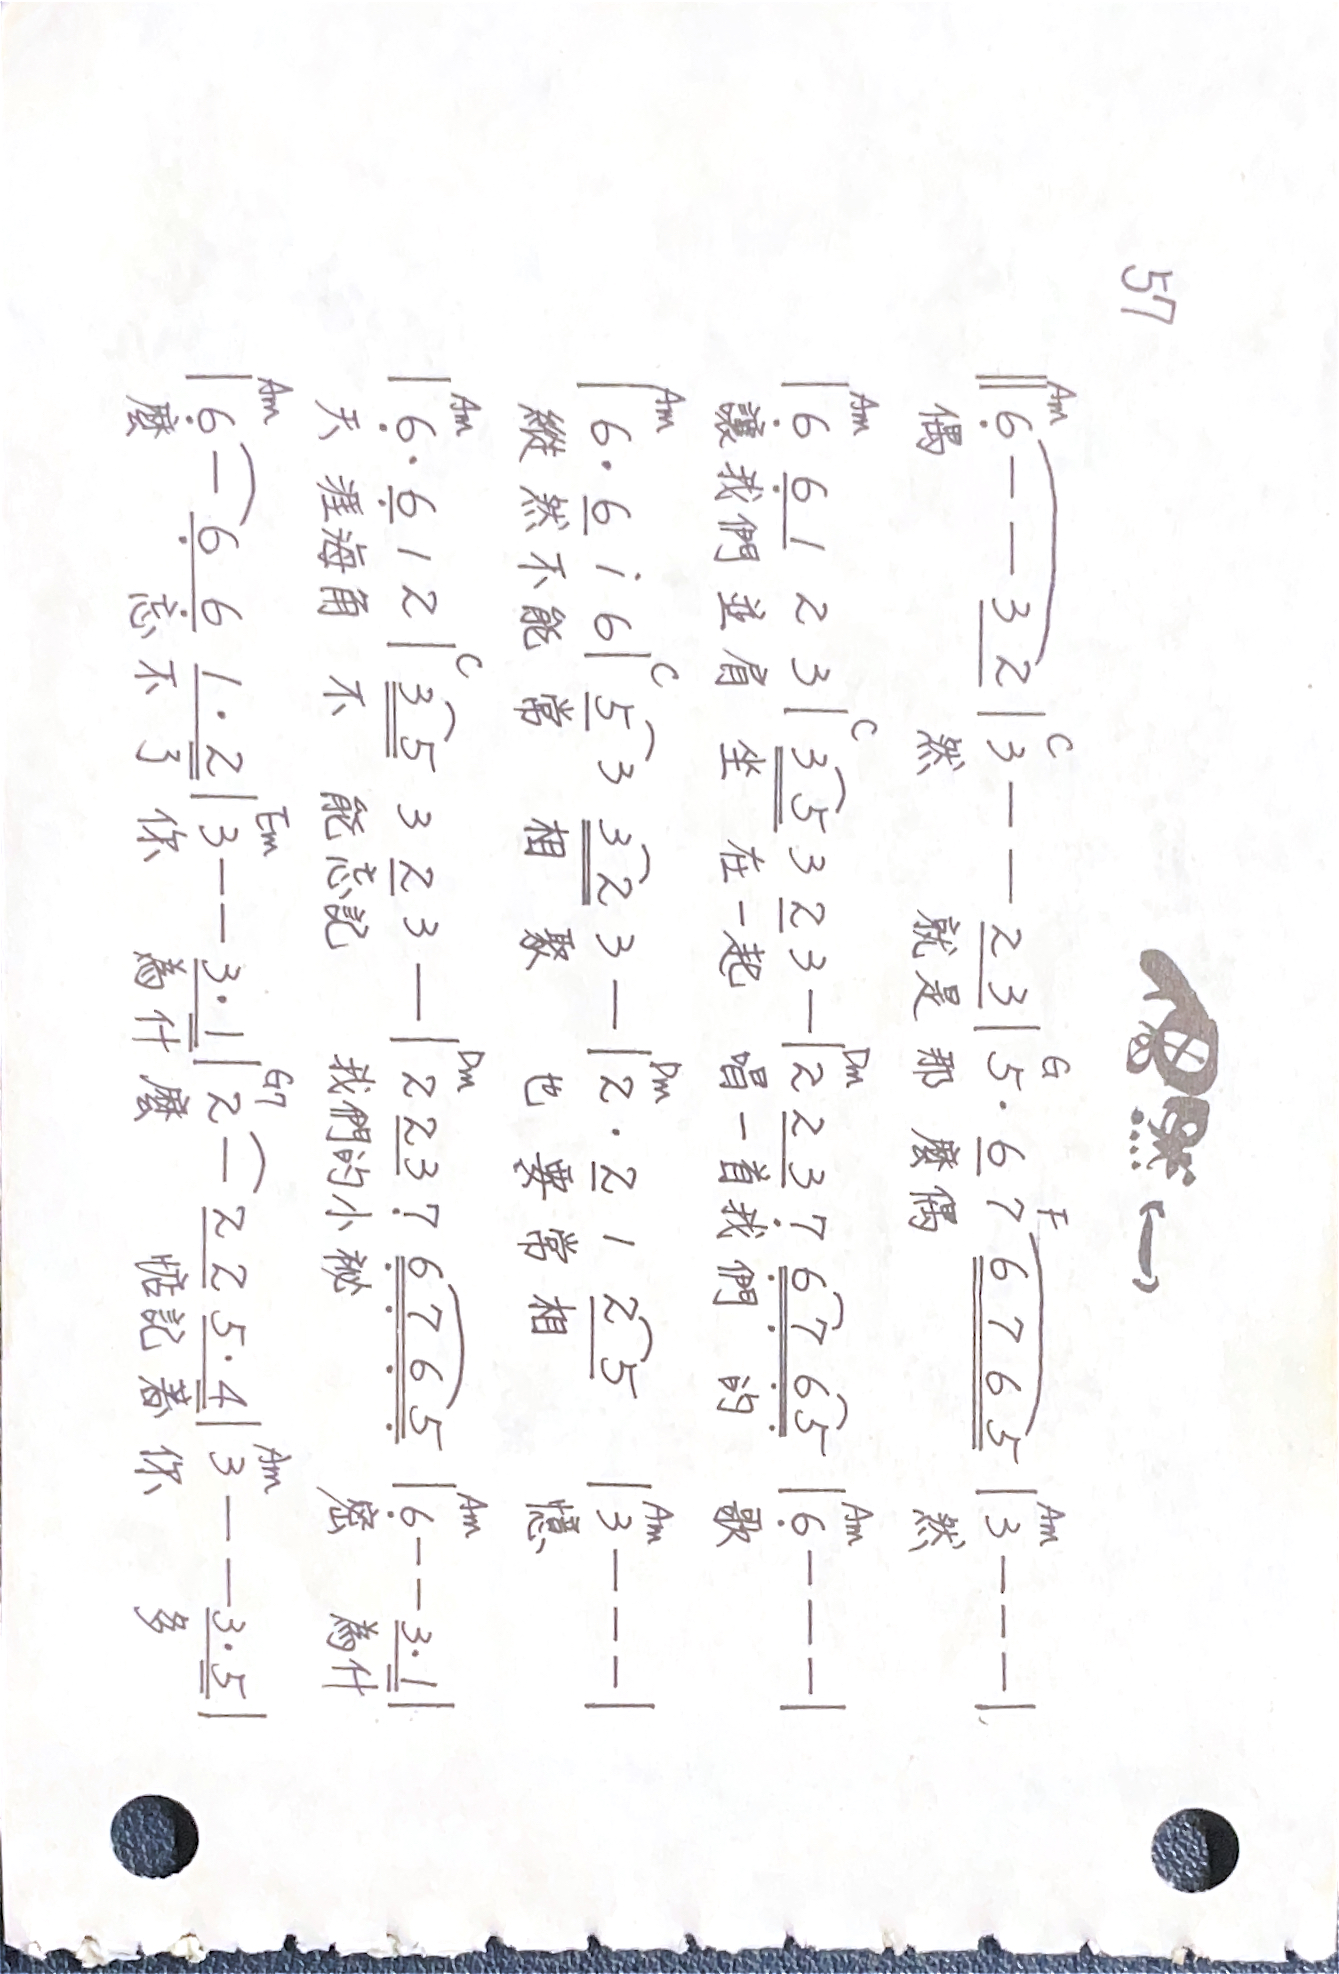 57
偶然(一)
Am C G F Am
6 — — 3 2 | 3 — — 2 3 | 5 · 6 7 6 7 6 5 | 3 — — — |
偶 然 就是那麼偶 然
Am C Dm Am
| 6 6 1 2 3 | 3 5 3 2 3 — | 2 2 3 7 6 7 6 5 | 6 — — — |
讓我們並肩 坐 在一起 唱一首我們 的 歌
Am C Dm Am
| 6 · 6 i 6 | 5 3 3 2 3 — | 2 · 2 1 2 5 | 3 — — — |
縱然不能常 相 聚 也要常相 憶
Am C Dm Am
| 6 · 6 1 2 | 3 5 3 2 3 — | 2 2 3 7 6 7 6 5 | 6 — — 3 · 1 |
天涯海角 不 能忘記 我們的小祕 密 為什
Am Em G7 Am
| 6 — 6 6 1 · 2 | 3 — — 3 · 1 | 2 — 2 2 5 · 4 | 3 — — 3 · 5 |
麼 忘不了你 為什麼 惦記著你 多